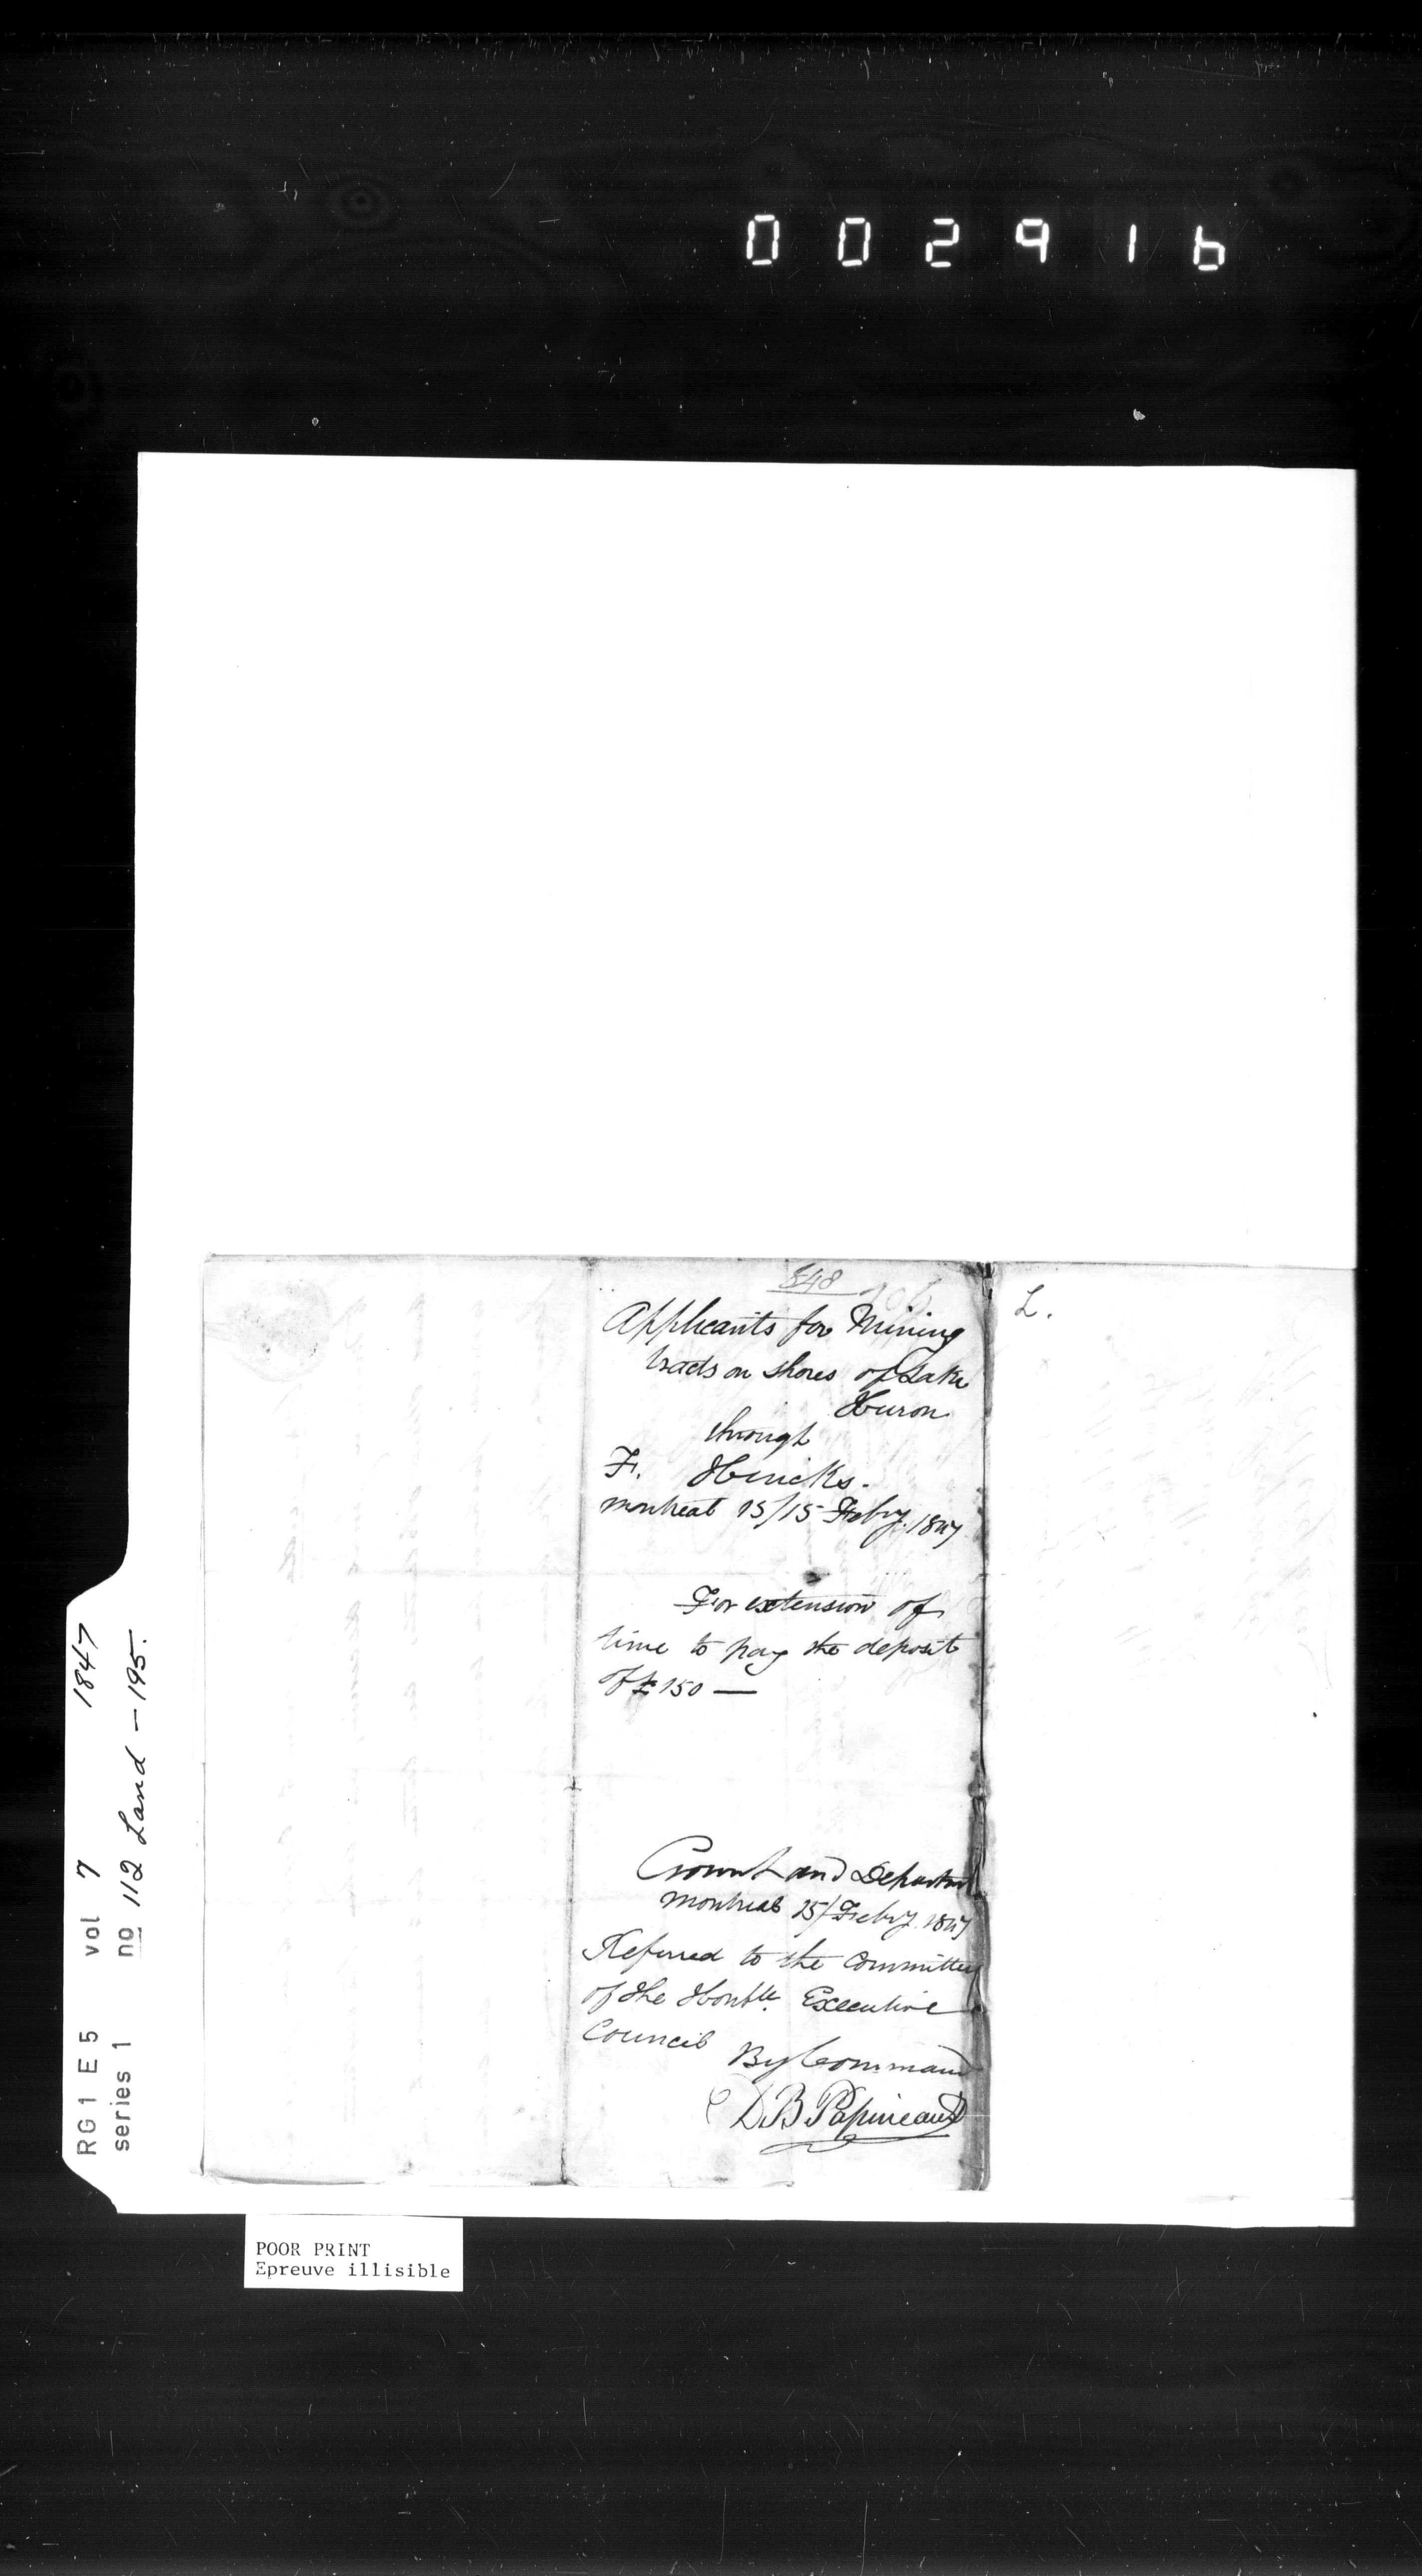 002916
548
L.
Applicants for Mining
tracts on shores of Lake
Huron
through
F. Hincks.
Montreal 15/15 Feby. 1847
For extension of
time to pay the deposit
of £150 —
Crown Land Departmt
Montreal 25/Feby. 1847
Referred to the Committee
of the Honble. Executive
Council
By Command
D B Papineau
RG1 E5 vol 7 1847
series 1 no 112 Land – 195.
POOR PRINT
Epreuve illisible